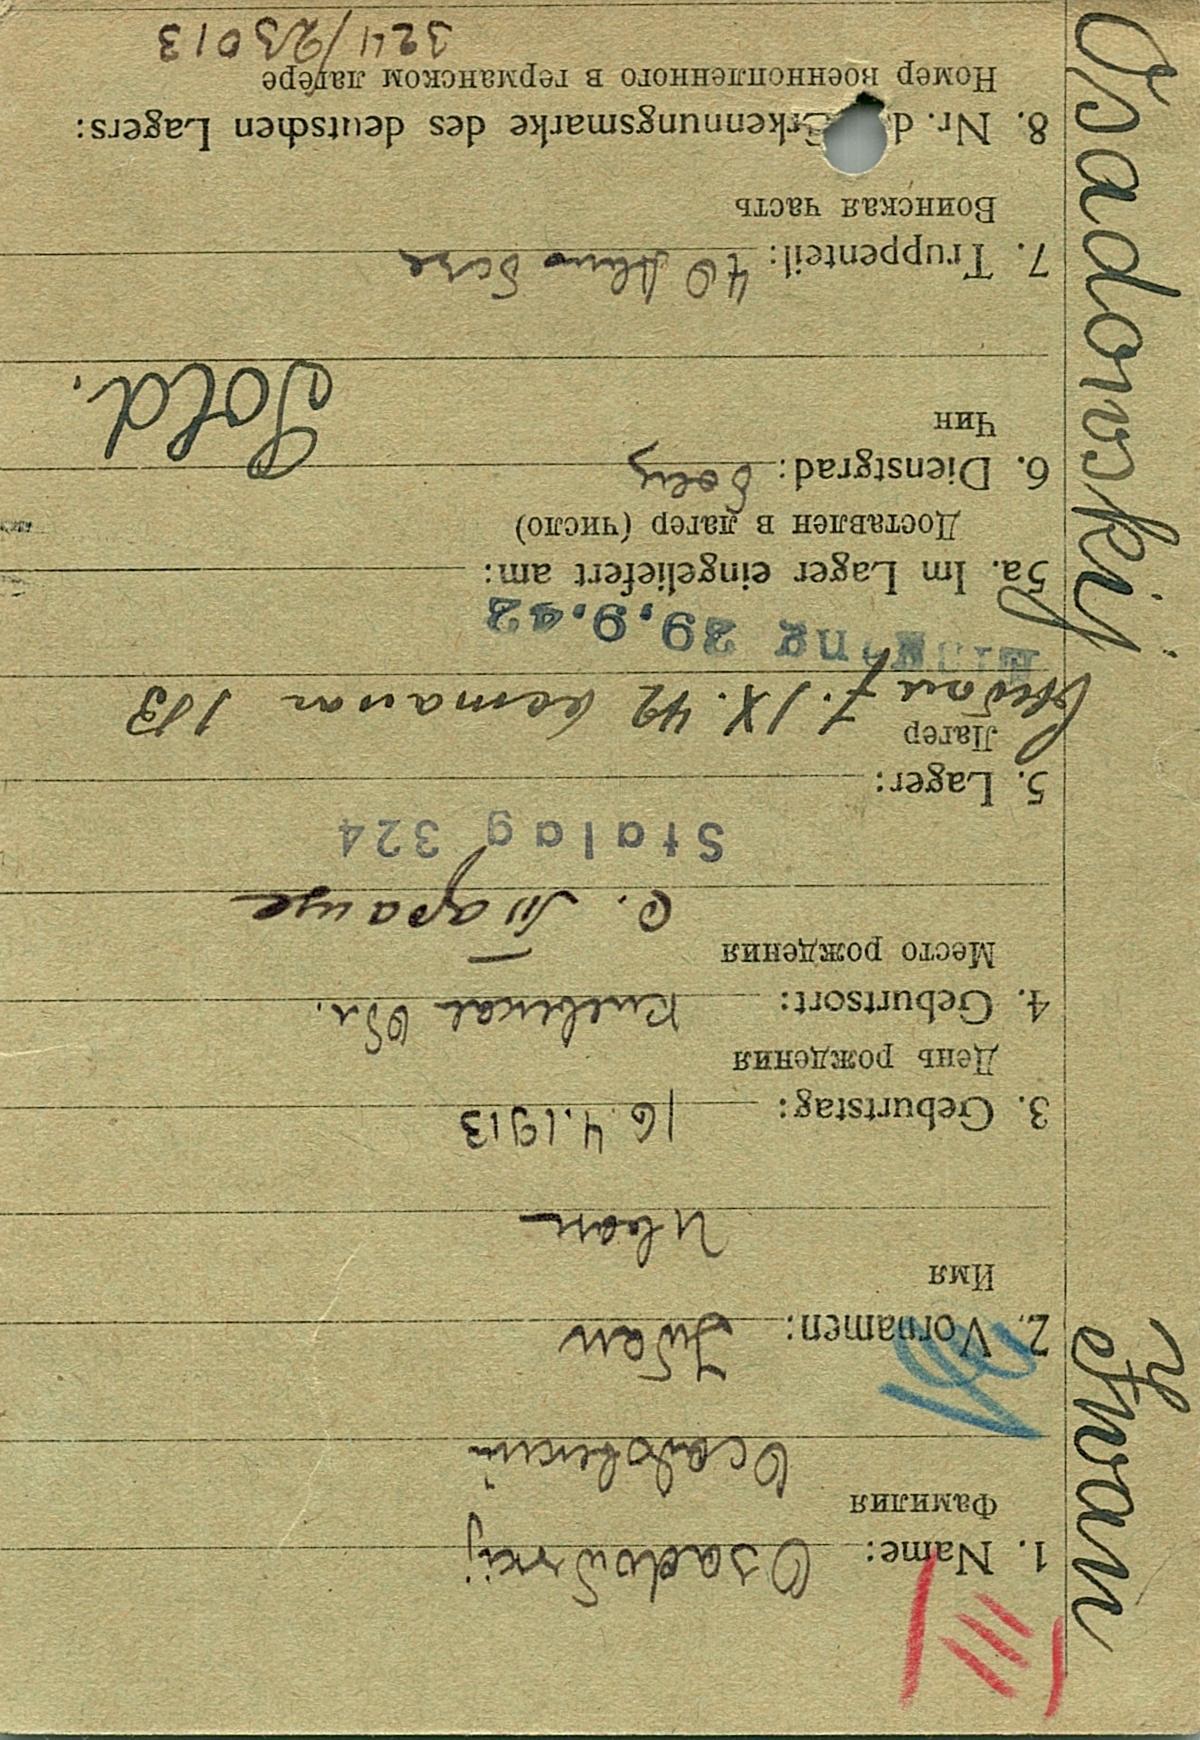 Osadovskij Iwan
1. Name: Osadowskij
Фамилия
Осадовский
2. Vornamen: Iwan
Имя
Иван
3. Geburtstag: 16.4.1913
День рождения
4. Geburtsort: Киевская обл.
Место рождения
Stalag 324
5. Lager:
Лагер
7.IX.42 183
Eingang 29.9.42
5a. Im Lager eingeliefert am:
Доставлен в лагер (число)
6. Dienstgrad:
Чин
Sold.
7. Truppenteil: 40
Воинская часть
8. Nr. d. Erkennungsmarke des deutschen Lagers:
Номер военнопленного в германском лагере
324/23013